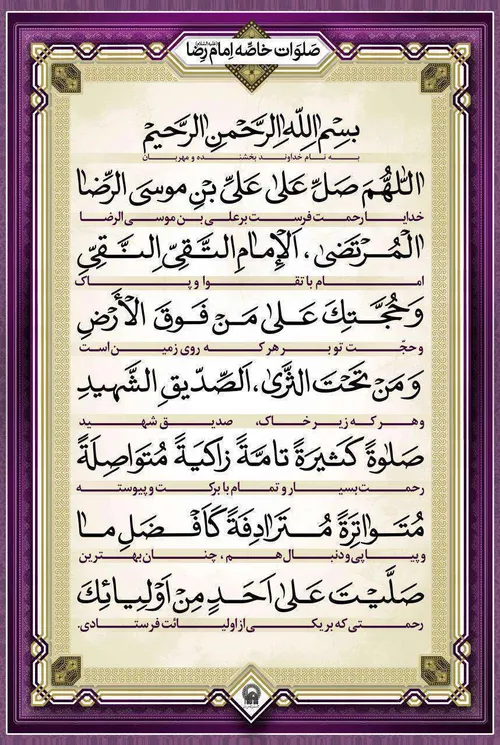 صلوات خاصّه امام رضا
بِسْمِ اللهِ الرَّحْمنِ الرَّحیمْ
به نام خداوند بخشنده و مهربان
اَللّهُمَ صَلِّ عَلی عَلیِّ بْنِ موسَی الرِّضا
خدایا رحمت فرست بر علی بن موسی الرضا
الْمُرْتَضی، اَلْإمامِ التَّقیِّ النَّقیِّ
امام با تقوا و پاک
وَحُجَّتِكَ عَلی مَنْ فَوقَ الْأَرْضِ
و حجّت تو بر هر که روی زمین است
وَ مَنْ تَحْتَ الثَّری، اَلصِّدّیقِ الشَّهیدِ
و هر که زیر خاک، صدیق شهید
صَلوةً کَثیرَةً تامَةً زاکَیَةً مُتَواصِلَةً
رحمت بسیار و تمام با برکت و پیوسته
مُتَواتِرَةً مُتَرادِفَةً کَاَفْضَلِ ما
و پیاپی و دنبال هم، چنان بهترین
صَلَّیْتَ عَلی اَحَدٍ مِنْ اَوْلِیائِكَ
رحمتی که بر یکی از اولیائت فرستادی.